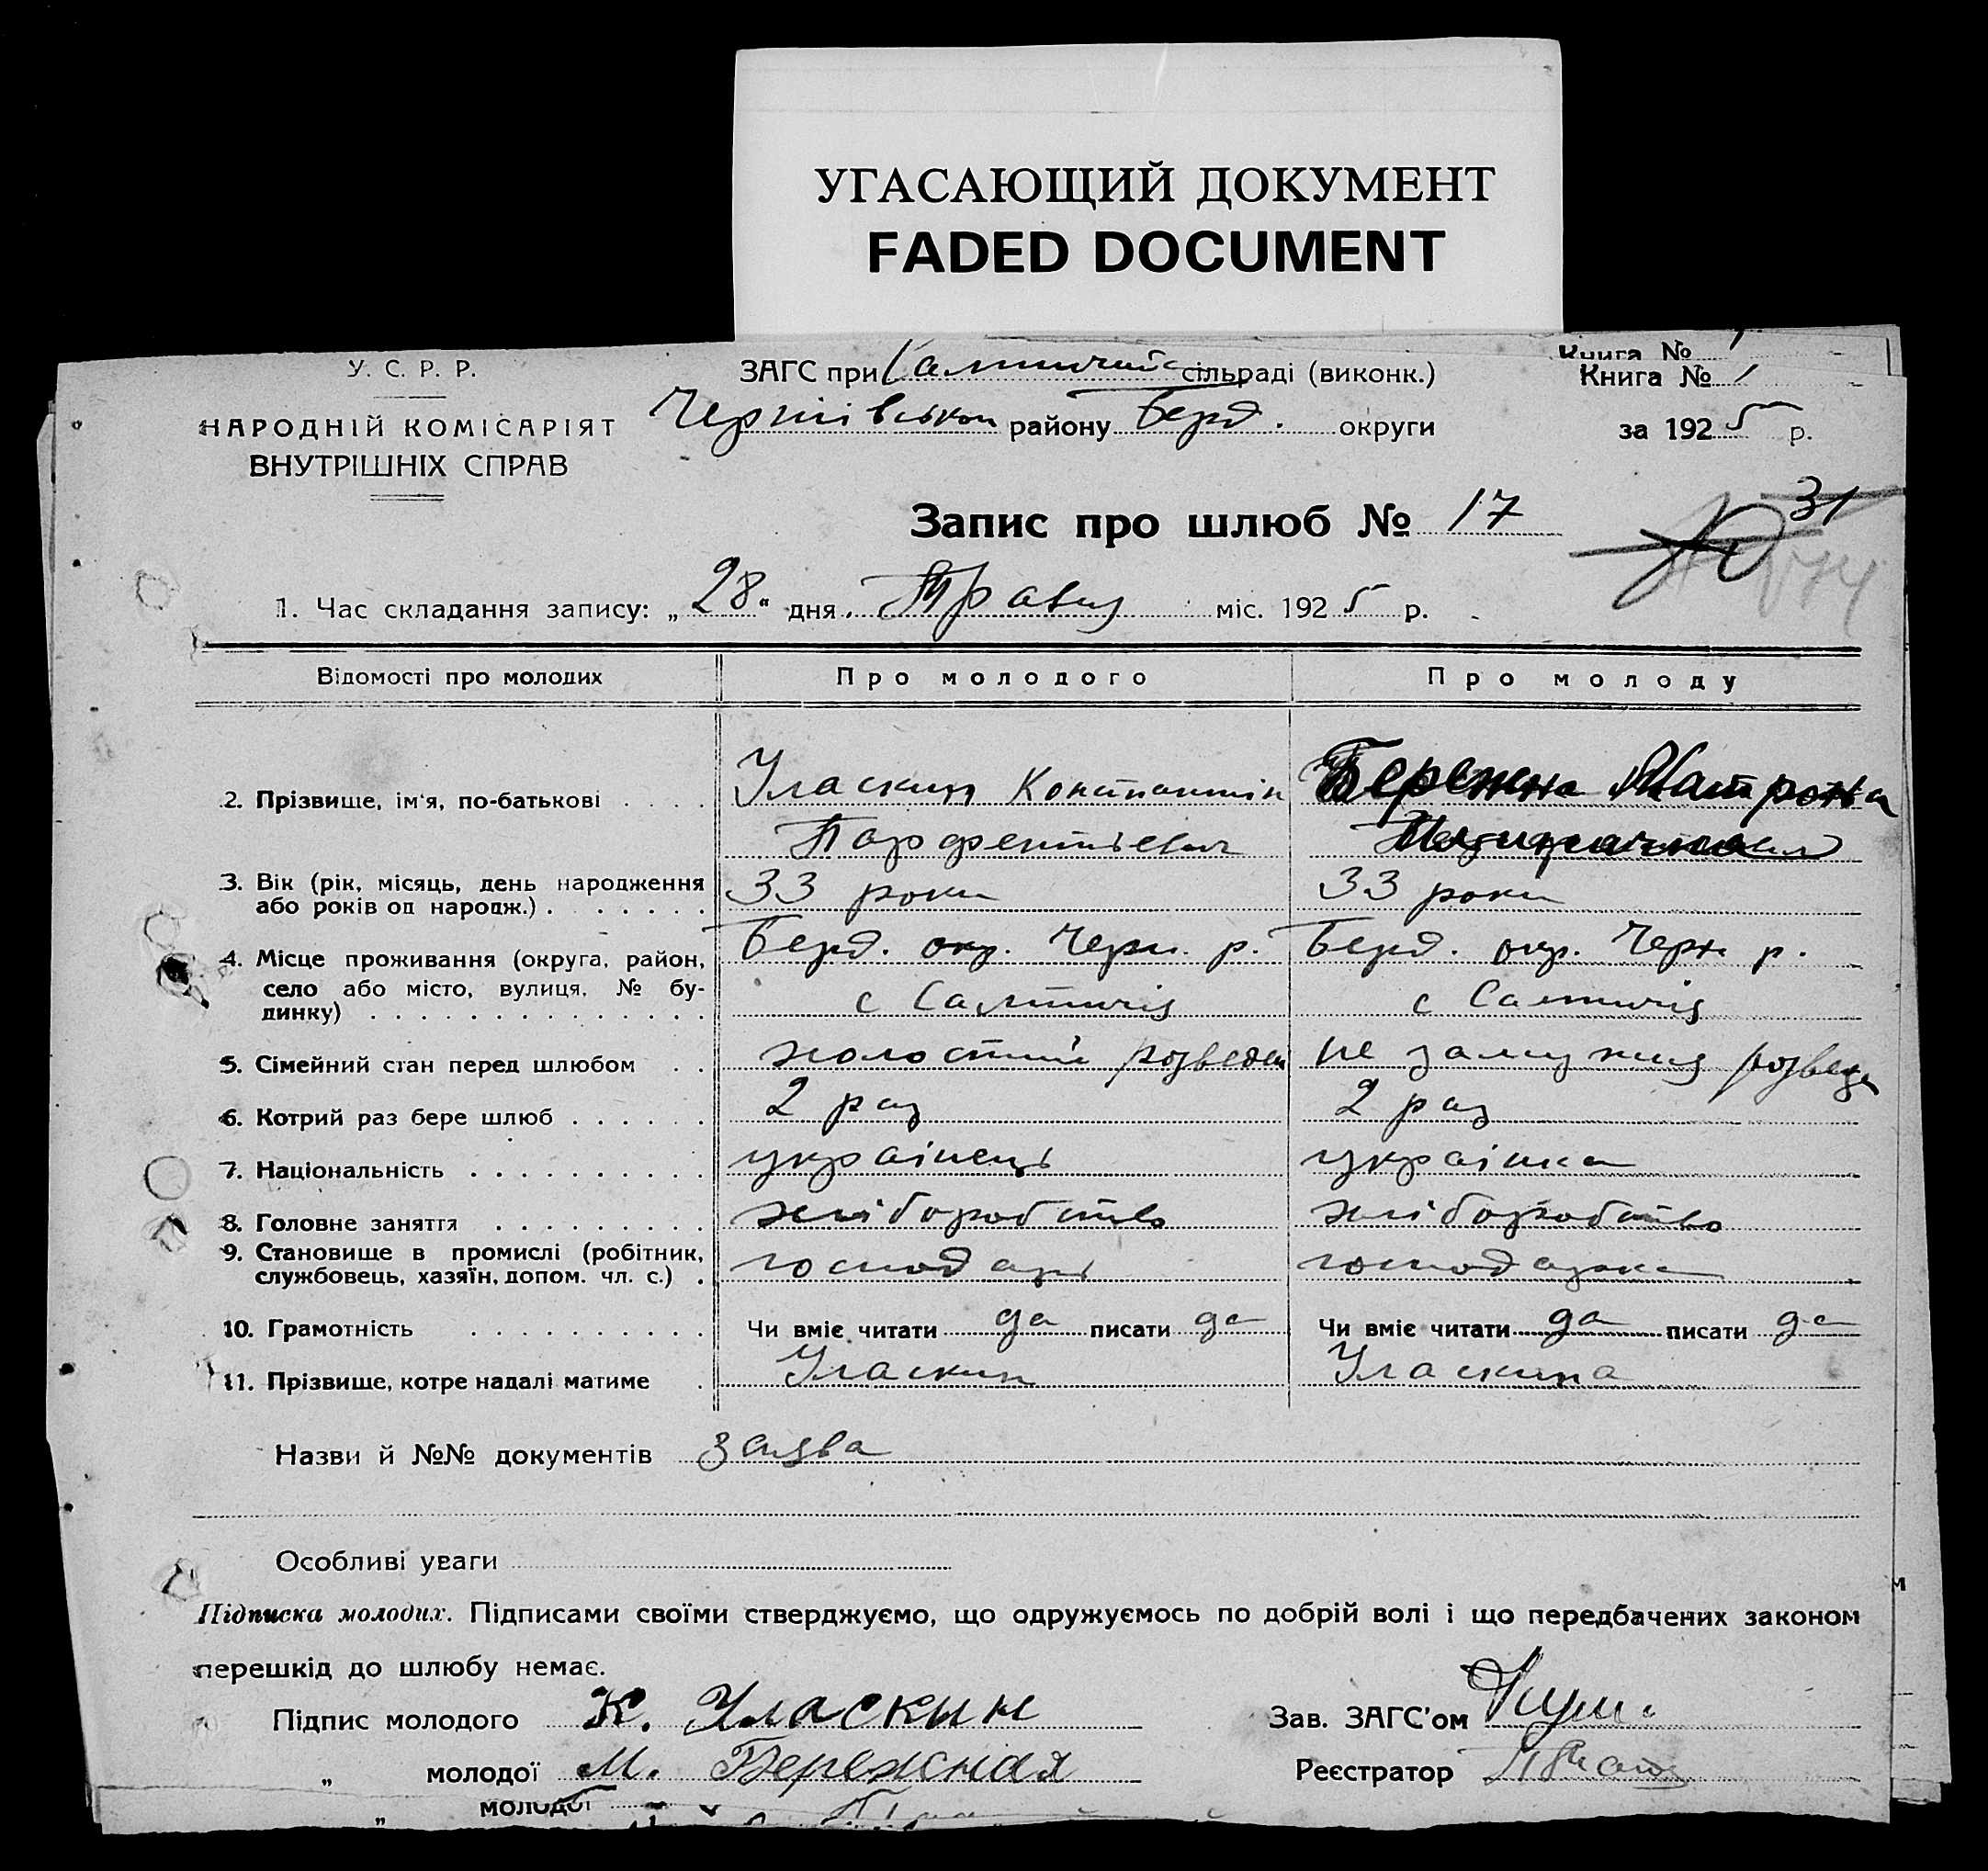 УГАСАЮЩИЙ ДОКУМЕНТ
FADED DOCUMENT
Книга №
У. С. Р. Р.
ЗАГС при Салтичийс сільраді (виконк.)
Книга № 1
НАРОДНІЙ КОМІСАРІЯТ
ВНУТРІШНІХ СПРАВ
Чернівськом району Берд. округи
за 1925 р.
Запис про шлюб № 17
31
1. Час складання запису: „28“ дня Травня міс. 1925 р.
Відомості про молодих Про молодого Про молоду
2. Прізвище, ім'я, по-батькові Уласкин Константін Бережна Матрона
Парфентієвич
3. Вік (рік, місяць, день народження або років од народж.) 33 роки 33 роки
4. Місце проживання (округа, район, село або місто, вулиця, № будинку) Берд. окр. Черн. р. Берд. окр. Черн р.
с Салтичія с Салтичія
5. Сімейний стан перед шлюбом холостий розведен не замужня розведе
6. Котрий раз бере шлюб 2 раз 2 раз
7. Національність українець українка
8. Головне заняття хліборобство хліборобство
9. Становище в промислі (робітник, службовець, хазяїн, допом. чл. с.) господарь господарка
10. Грамотність Чи вміє читати да писати да Чи вміє читати да писати да
11. Прізвище, котре надалі матиме Уласкин Уласкина
Назви й №№ документів заява
Особливі уваги
Підписка молодих. Підписами своїми стверджуємо, що одружуємось по добрій волі і що передбачених законом
перешкід до шлюбу немає.
Підпис молодого К. Уласкин Зав. ЗАГС'ом
„ молодої М. Бережная Реєстратор
молодої
„